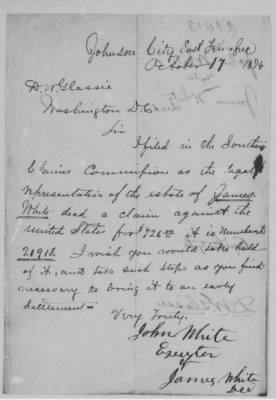 Johnson City East Tennessee
October 17 1876
D. W. Glassie
Washington D.C.
Sir
I filed in the Southern
Claims Commission as the legal
representation of the estate of James
White decd a claim against the
United States for $726.00 it is numbered
21913. I wish you would take hold
of it, and take such steps as you find
necessary to bring it to an early
Settlement—
Very Truly.
John White
of
James White
Dec